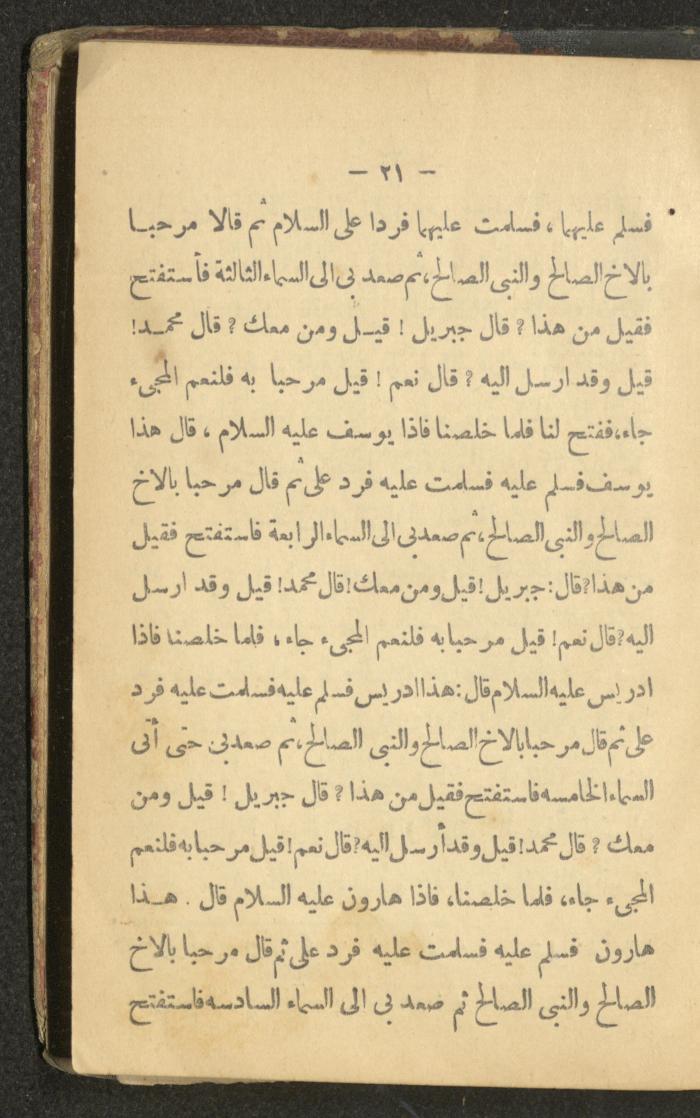 — ٢١ —
فسلم عليهما ، فسلمت عليهما فردا على السلام ثم قالا مرحبا
بالاخ الصالح والنبى الصالح ، ثم صعد بى الى السماء الثالثة فأستفتح
فقيل من هذا ? قال جبريل ! قيل ومن معك ? قال محمد !
قيل وقد ارسل اليه ? قال نعم ! قيل مرحبا به فلنعم المجىء
جاء ، ففتح لنا فلما خلصنا فاذا يوسف عليه السلام ، قال هذا
يوسف فسلم عليه فسلمت عليه فرد على ثم قال مرحبا بالاخ
الصالح والنبى الصالح ، ثم صعدبى الى السماء الرابعة فاستفتح فقيل
من هذا ? قال : جبريل ! قيل ومن معك ! قال محمد ! قيل وقد ارسل
اليه ? قال نعم ! قيل مرحبابه فلنعم المجىء جاء ، فلما خلصنا فاذا
ادريس عليه السلام قال : هذا ادريس فسلم عليه فسلمت عليه فرد
على ثم قال مرحبا بالاخ الصالح والنبى الصالح ، ثم صعدبى حتى أتى
السماء الخامسه فاستفتح فقيل من هذا ? قال جبريل ! قيل ومن
معك ? قال محمد ! قيل وقد أرسل اليه ? قال نعم ! قيل مرحبا به فلنعم
المجىء جاء ، فلما خلصنا ، فاذا هارون عليه السلام قال . هذا
هارون فسلم عليه فسلمت عليه فرد على ثم قال مرحبا بالاخ
الصالح والنبى الصالح ثم صعد بى الى السماء السادسه فاستفتح